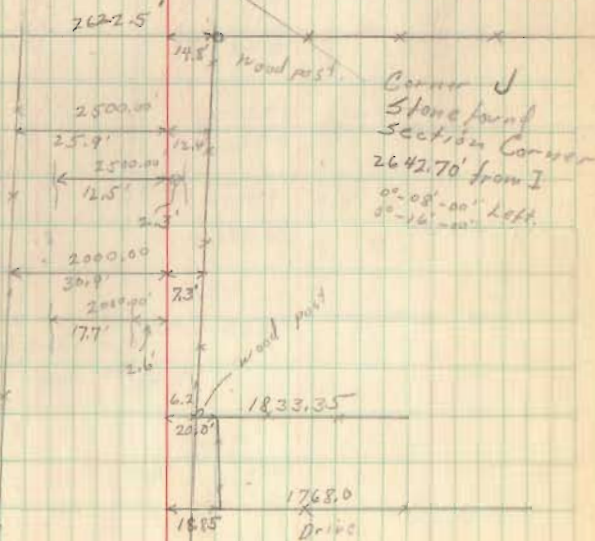 2622.5
14.8'
wood post.
Corner J
Stone found
Section Corner
2642.70' from I
0°-08'-00" Left.
0°-16'-00"
2500.00'
25.9'
12.4'
2500.00'
12.5'
2.3'
2000.00
30.9'
7.3'
2000.00'
17.7'
2.6'
wood post
6.2'
1833.35
20.0'
1768.0
18.85
Drive